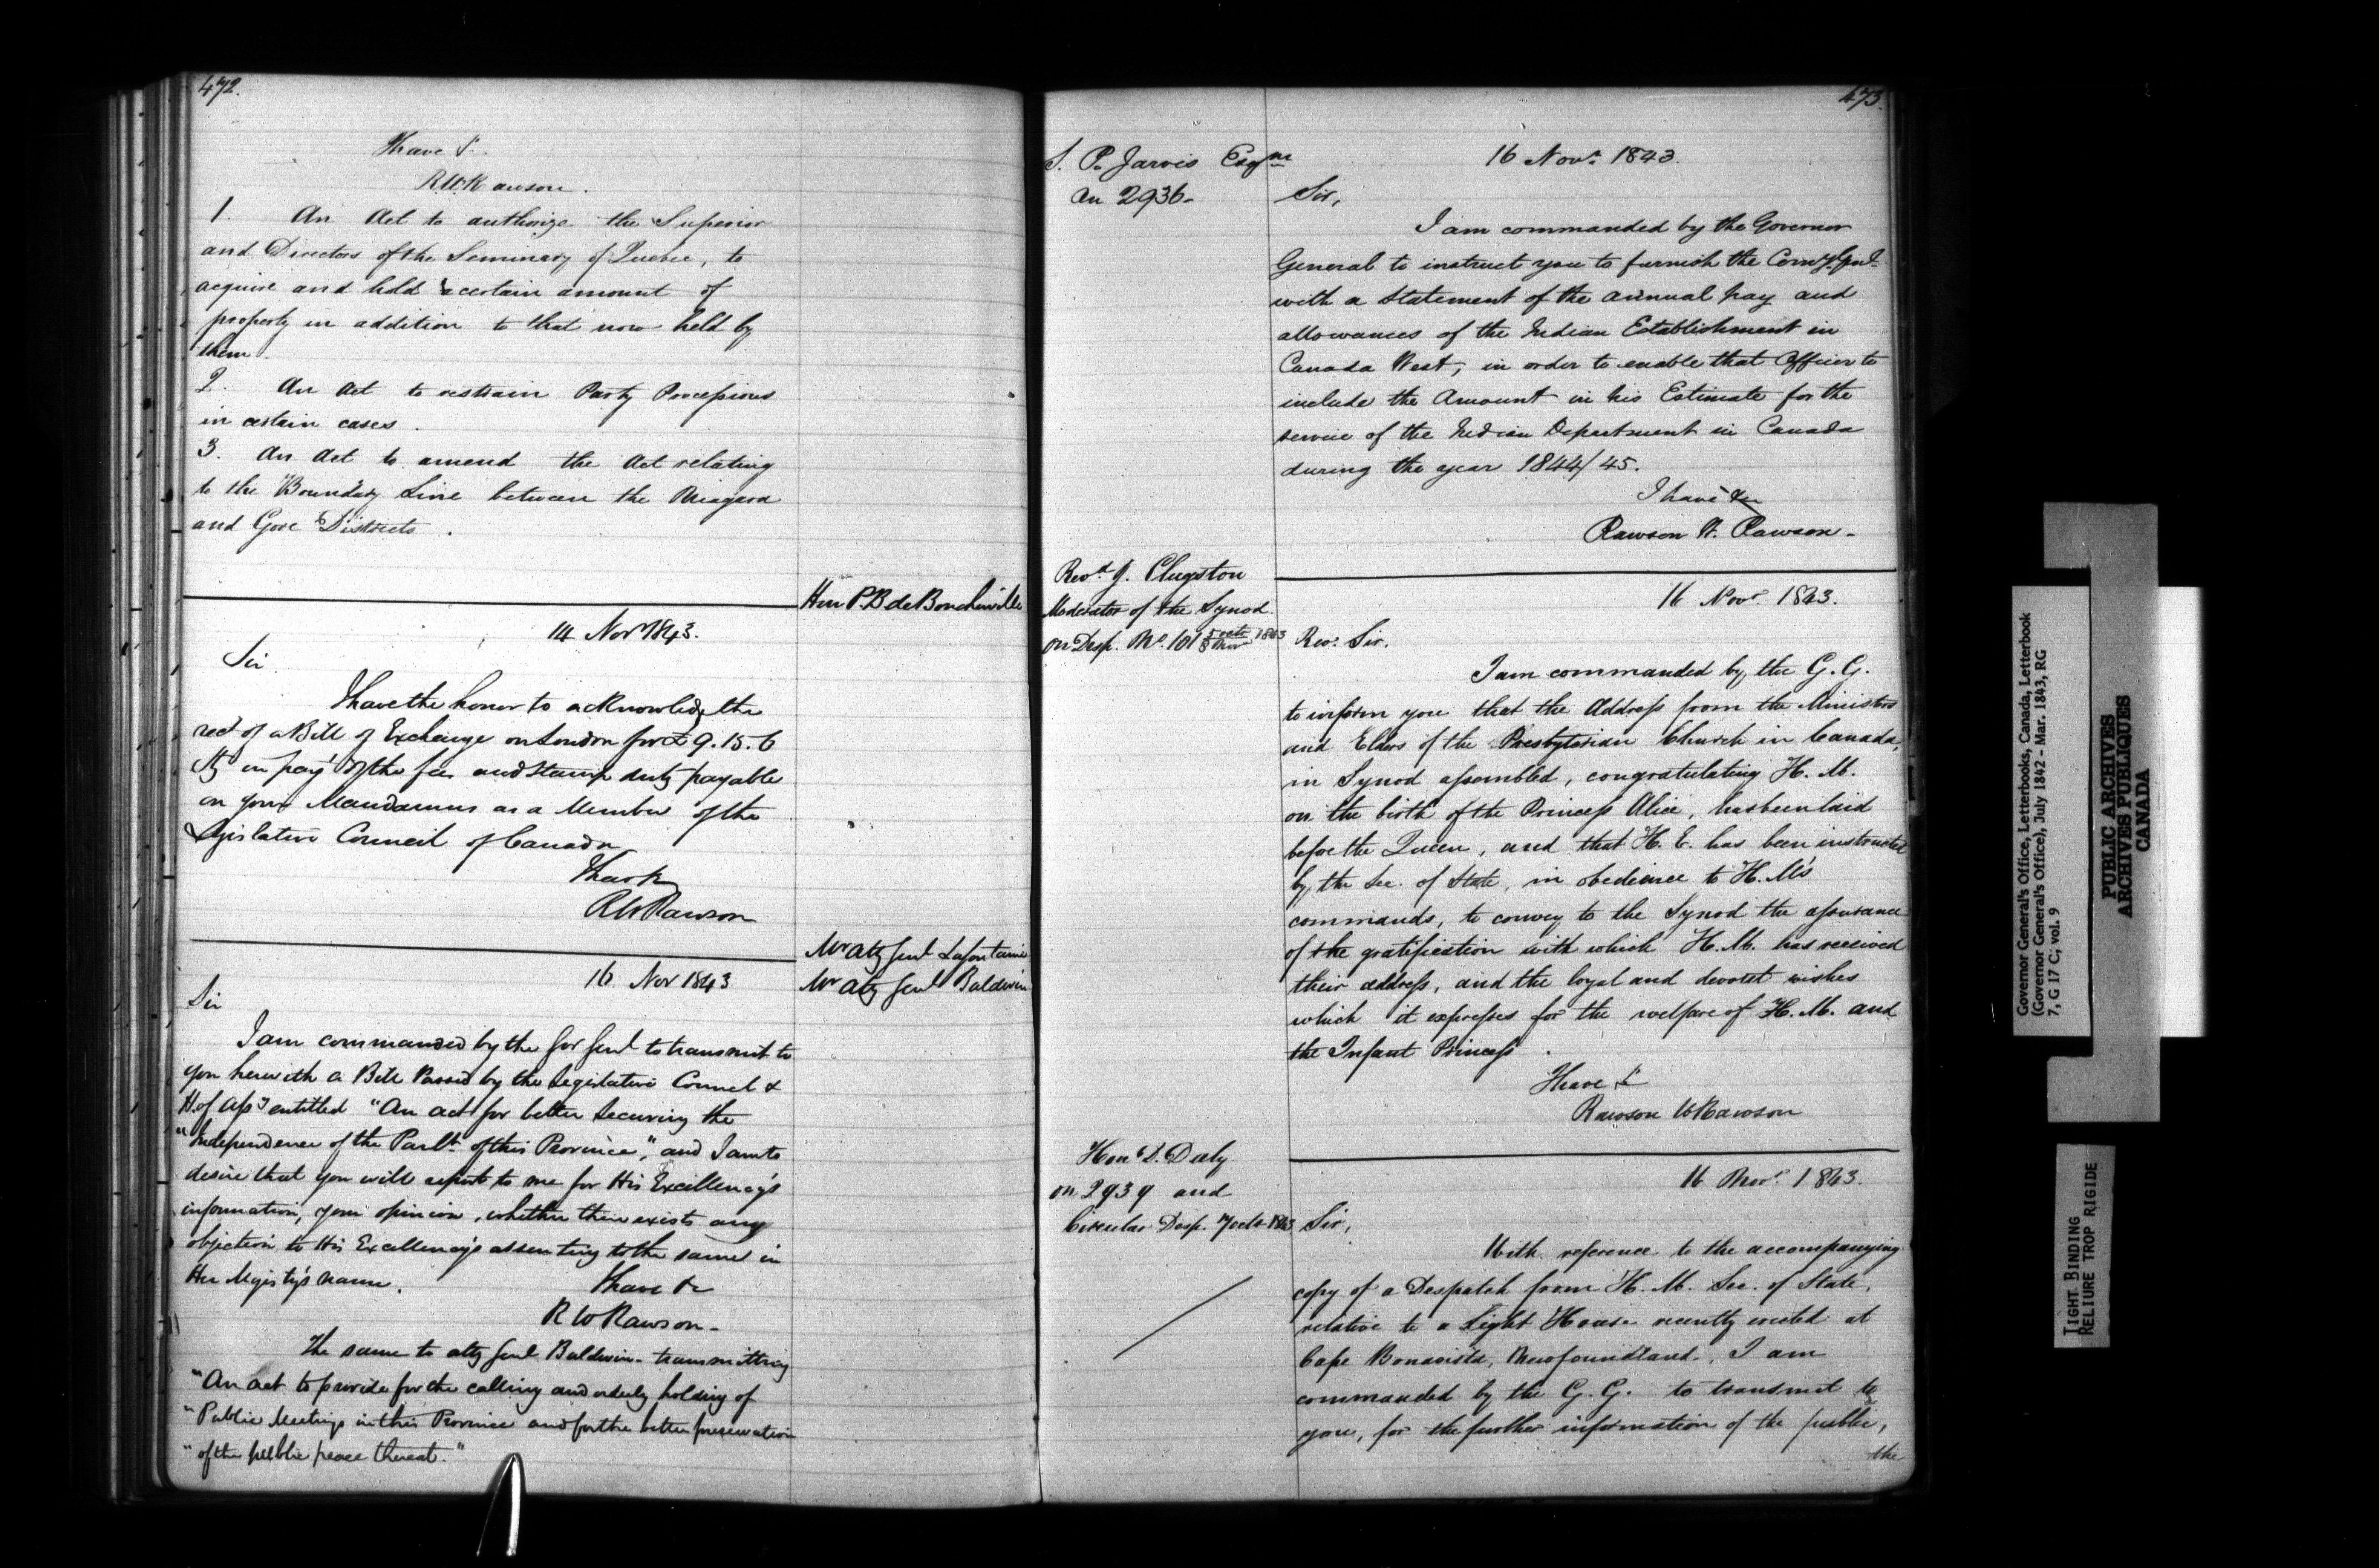 472.
I have &c.
R.W. Rawson.
1. An Act to authorize the Superior
and Directors of the Seminary of Quebec, to
acquire and hold a certain amount of
property in addition to that now held by
them.
2. An Act to restrain Party Processions
in certain cases.
3. An Act to amend the Act relating
to the Boundary Line between the Niagara
and Gore Districts.
Hon P.B. de Boucherville
14 Nov 1843.
Sir
I have the honor to acknowledge the
rect of a Bill of Exchange on London for £9.15.6
Stg in payt of the fees and Stamp duty payable
on your Mandamus as a Member of the
Legislative Council of Canada
I have &c
R W Rawson
Mr Atty Genl Lafontaine
Mr Atty Genl Baldwin
16 Nov 1843
Sir
I am commanded by the Gov Genl to transmit to
you herewith a Bill Passed by the Legislative Council &
H. of Assy entitled "An act for better Securing the
"Independence of the Parlt. of this Province", and I am to
desire that you will report to me for His Excellency's
information, your opinion, whether there exists any
objection to His Excellency's assenting to the same in
Her Majesty's name.
I have &c
R W Rawson.
The same to Atty Genl Baldwin - transmitting
"An act to provide for the calling and orderly holding of
"Public Meetings in this Province and for the better preservation
"of the public peace thereat."
473.
S. P. Jarvis Esqre
on 2936.
16 Novr. 1843.
Sir,
I am commanded by the Governor
General to instruct you to furnish the Comy. Genl.
with a Statement of the annual pay and
allowances of the Indian Establishment in
Canada West, in order to enable that Officer to
include the Amount in his Estimate for the
service of the Indian Department in Canada
during the year 1844/45.
I have &c
Rawson W. Rawson.
Revd. J. Clugston
Moderator of the Synod.
on Desp. No. 101 5 Octr 1843
8 Nov
16 Novr. 1843.
Rev. Sir.
I am commanded by the G. G.
to inform you that the Address from the Ministers
and Elders of the Presbyterian Church in Canada,
in Synod assembled, congratulating H. M.
on the birth of the Princess Alice, has been laid
before the Queen, and that H. E. has been instructed
by the Sec. of State, in obedience to H. M's
commands, to convey to the Synod the assurance
of the gratification with which H. M. has received
their address, and the loyal and devotet wishes
which it expresses for the welfare of H. M. and
the Infant Princess.
I have &c
Rawson W Rawson
Hon. D. Daly
on 2939 and
Circular Desp. 7 Octr 1843
16 Novr. 1843.
Sir,
With reference to the accompanying
copy of a Despatch from H. M. Sec. of State,
relative to a Light House recently erected at
Cape Bonavista, Newfoundland, I am
commanded by the G. G. to transmit to
you, for the further information of the public,
the
Governor General's Office, Letterbooks, Canada, Letterbook
(Governor General's Office), July 1842 - Mar. 1843, RG
7, G 17 C; vol. 9
PUBLIC ARCHIVES
ARCHIVES PUBLIQUES
CANADA
TIGHT BINDING
RELIURE TROP RIGIDE